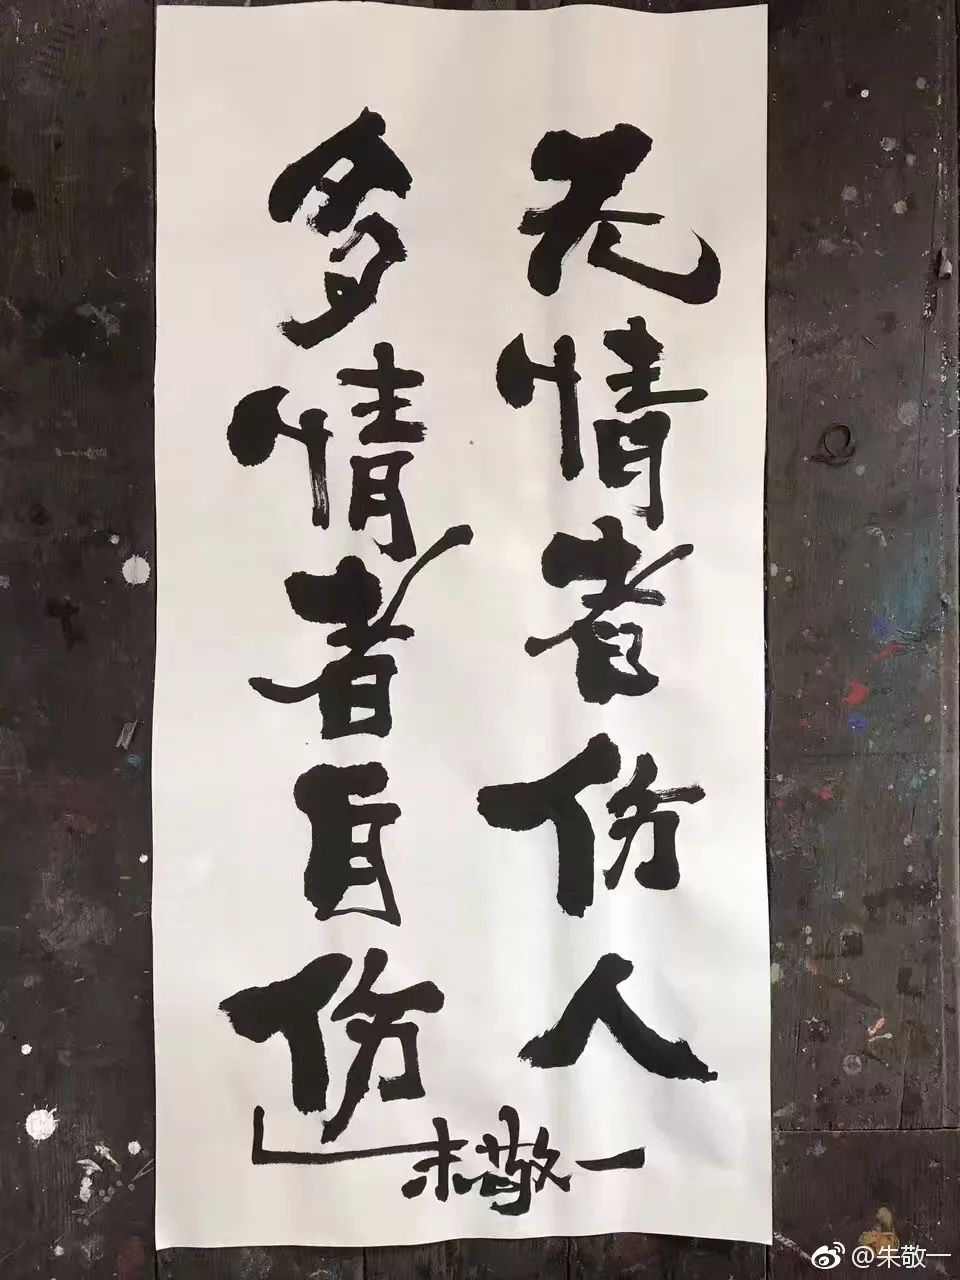 无情者伤人
多情者自伤
朱敬一
@朱敬一